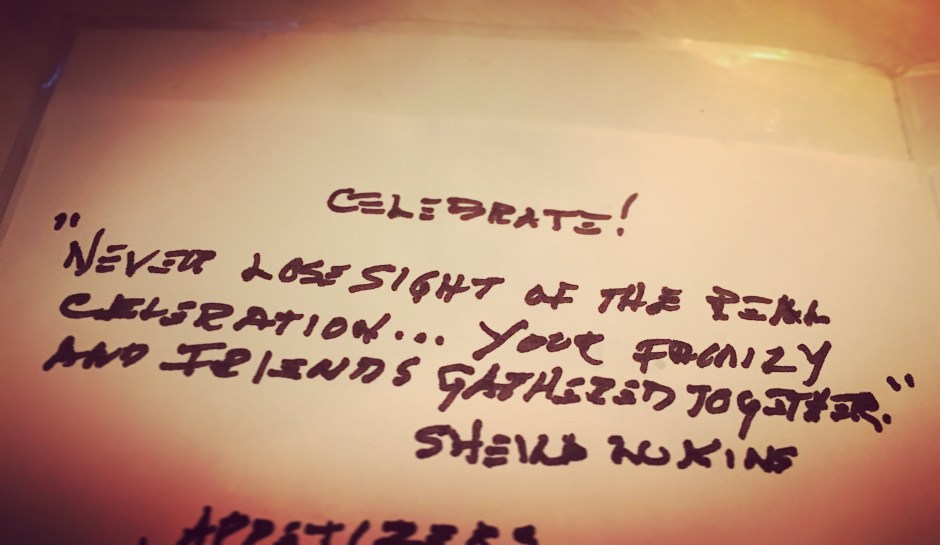 CELEBRATE!
"NEVER LOSE SIGHT OF THE REAL
CELEBRATION... YOUR FAMILY
AND FRIENDS GATHERED TOGETHER."
SHEILA LUKINS
APPETIZERS